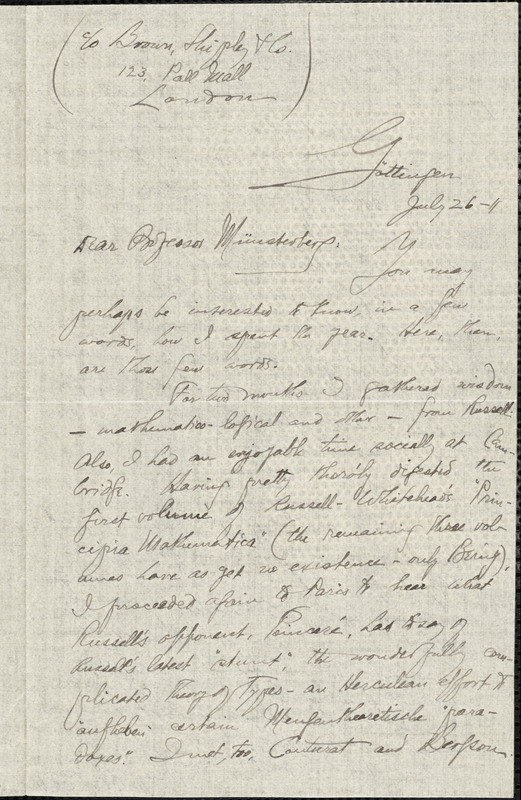 (c/o Brown, Shipley & Co.
123, Pall Mall
London)
Göttingen
July 26-11
Dear Professor Münsterberg:
You may
perhaps be interested to know, in a few
words, how I spent the year. Here, then,
are those few words.
For two months I gathered wisdom
- mathematico-logical and other - from Russell.
Also, I had an enjoyable time socially at Cam-
bridge. Having pretty thoro'ly digested the
first volume of Russell-Whitehead's "Prin-
cipia Mathematica" (the remaining three vol-
umes have as yet no existence - only Being),
I proceeded again to Paris to hear what
Russell's opponent, Poincaré, has to say of
Russell's latest "stunt", the wonderfully com-
plicated theory of Types - an Herculean effort to
"aufheben" certain Mengentheoretische "para-
doxes". I met, too, Couturat and Bergson.